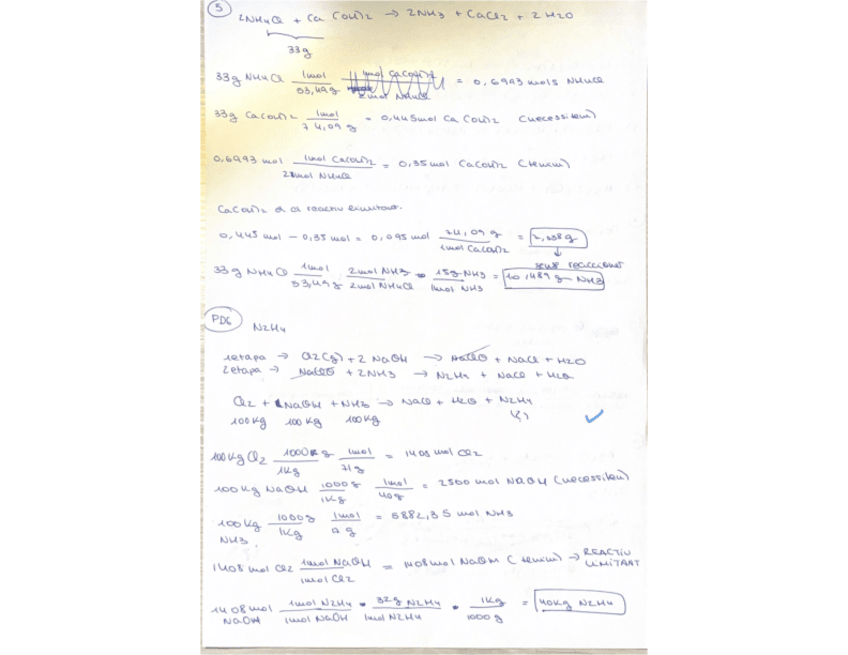 5
2NH4Cl + Ca(OH)2 → 2NH3 + CaCl2 + 2H2O
33g
33g NH4Cl 1mol / 53,49g 1mol Ca(OH)2 / 2mol NH4Cl = 0,6993 mols NH4Cl
33g Ca(OH)2 1mol / 74,09 g = 0,445mol Ca(OH)2 (necessitem)
0,6993 mol 1mol Ca(OH)2 / 2mol NH4Cl = 0,35mol Ca(OH)2 (tenim)
Ca(OH)2 és el reactiu limitant.
0,445 mol - 0,35 mol = 0,095 mol 74,09 g / 1mol Ca(OH)2 = 7,038g
sense reaccionar
33g NH4Cl 1mol / 53,49g 2mol NH3 / 2mol NH4Cl • 15g NH3 / 1mol NH3 = 10,489g NH3
PD6 N2H4
1etapa → Cl2(g) + 2 NaOH → NaClO + NaCl + H2O
2etapa → NaClO + 2NH3 → N2H4 + NaCl + H2O
Cl2 + NaOH + NH3 → NaCl + H2O + N2H4
100Kg 100Kg 100Kg
100Kg Cl2 1000g / 1Kg 1mol / 71g = 1408 mol Cl2
100Kg NaOH 1000g / 1Kg 1mol / 40g = 2500 mol NaOH (necessitem)
100Kg NH3 1000g / 1Kg 1mol / 17 g = 5882,35 mol NH3
1408 mol Cl2 1mol NaOH / 1mol Cl2 = 1408mol NaOH (tenim) → REACTIU LIMITANT
1408mol NaOH 1mol N2H4 / 1mol NaOH • 32g N2H4 / 1mol N2H4 • 1Kg / 1000g = 40Kg N2H4